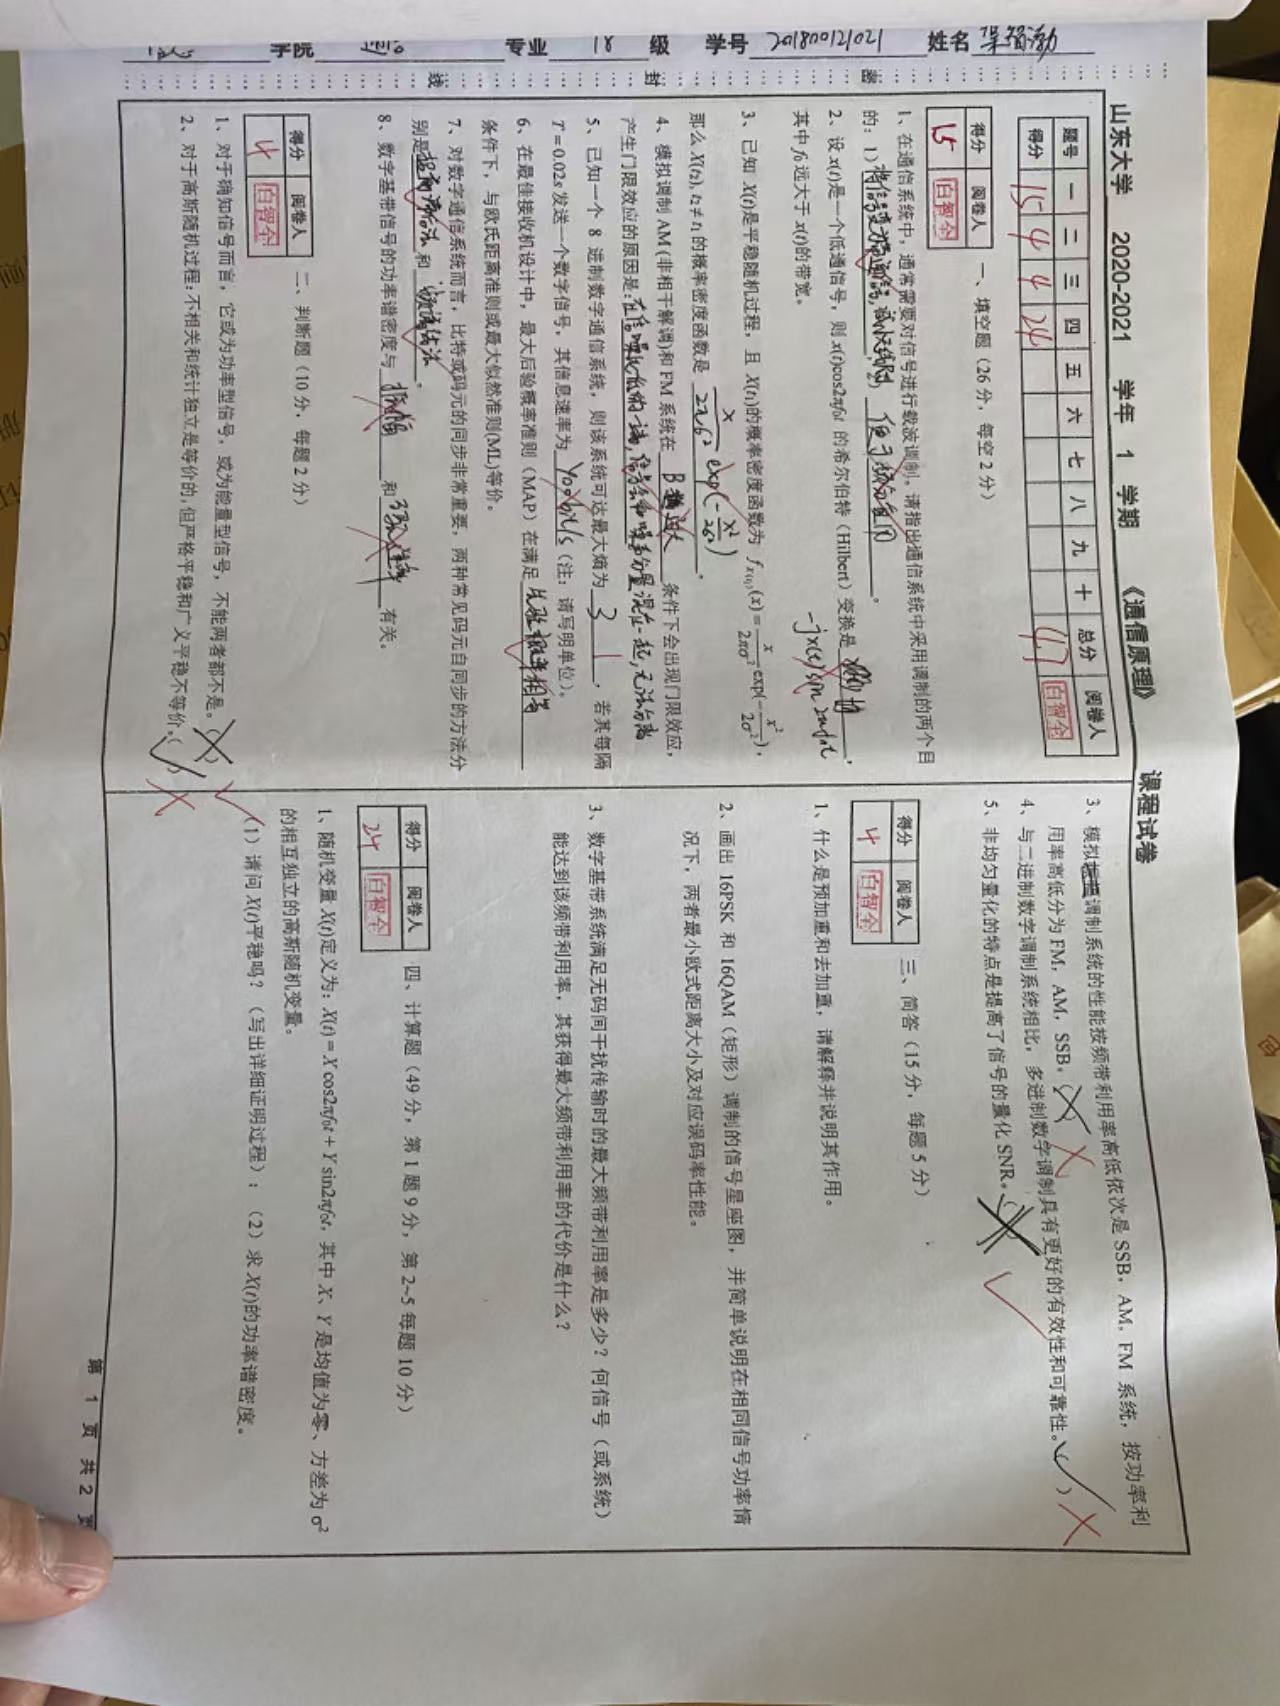 山东大学 2020-2021 学年 1 学期 《通信原理》 课程试卷
题号 一 二 三 四 五 六 七 八 九 十 总分 阅卷人
得分 15 4 4 24 47 白智全
得分 阅卷人
15 白智全
一、填空题（26分，每空2分）
1、在通信系统中，通常需要对信号进行载波调制。请指出通信系统中采用调制的两个目
的：1）将信号变为带通信号, 2） 便于频分复用 。
2、设 x(t)是一个低通信号，则 x(t)cos2πf₀t 的希尔伯特（Hilbert）变换是
-jx(t)sin2πf₀t
其中 f₀ 远大于 x(t)的带宽。
3、已知 X(t)是平稳随机过程，且 X(t₁)的概率密度函数为 fx(t₁)(x)=x/2πσ² exp(-x²/2σ²)，
那么 X(t₂), t₂≠t₁ 的概率密度函数是 x/2πσ² exp(-x²/2σ²) 。
4、模拟调制 AM (非相干解调)和 FM 系统在 条件下会出现门限效应，
产生门限效应的原因是：在信噪比低的一端,信号和噪声分量混在一起,无法分离
5、已知一个 8 进制数字通信系统，则该系统可达最大熵为 3 1 ，若其每隔
T = 0.02s 发送一个数字信号，其信息速率为 bit/s （注：请写明单位）。
6、在最佳接收机设计中，最大后验概率准则（MAP）在满足 先验概率相等
条件下，与欧氏距离准则或最大似然准则(ML)等价。
7、对数字通信系统而言，比特或码元的同步非常重要，两种常见码元自同步的方法分
别是 和 。
8、数字基带信号的功率谱密度与 振幅 和 有关。
得分 阅卷人
4 白智全
二、判断题（10分，每题2分）
1、对于确知信号而言，它或为功率型信号，或为能量型信号，不能两者都不是。（×）
2、对于高斯随机过程：不相关和统计独立是等价的，但严格平稳和广义平稳不等价。（✓）
3、模拟调制系统的性能按频带利用率高低依次是 SSB，AM，FM 系统，按功率利
用率高低分为 FM，AM，SSB。（×）
4、与二进制数字调制系统相比，多进制数字调制具有更好的有效性和可靠性。（✓）
5、非均匀量化的特点是提高了信号的量化 SNR。（×）
得分 阅卷人
4 白智全
三、简答（15分，每题5分）
1、什么是预加重和去加重，请解释并说明其作用。
2、画出 16PSK 和 16QAM（矩形）调制的信号星座图，并简单说明在相同信号功率情
况下，两者最小欧式距离大小及对应误码率性能。
3、数字基带系统满足无码间干扰传输时的最大频带利用率是多少？何信号（或系统）
能达到该频带利用率，其获得最大频带利用率的代价是什么？
得分 阅卷人
24 白智全
四、计算题（49分，第1题9分，第2~5每题10分）
1、随机变量 X(t)定义为：X(t) = X cos2πf₀t + Y sin2πf₀t，其中 X、Y 是均值为零、方差为 σ²
的相互独立的高斯随机变量。
（1）请问 X(t)平稳吗？（写出详细证明过程）；（2）求 X(t)的功率谱密度。
第 1 页 共 2 页
姓名
学号
级
专业
学院
密
封
线